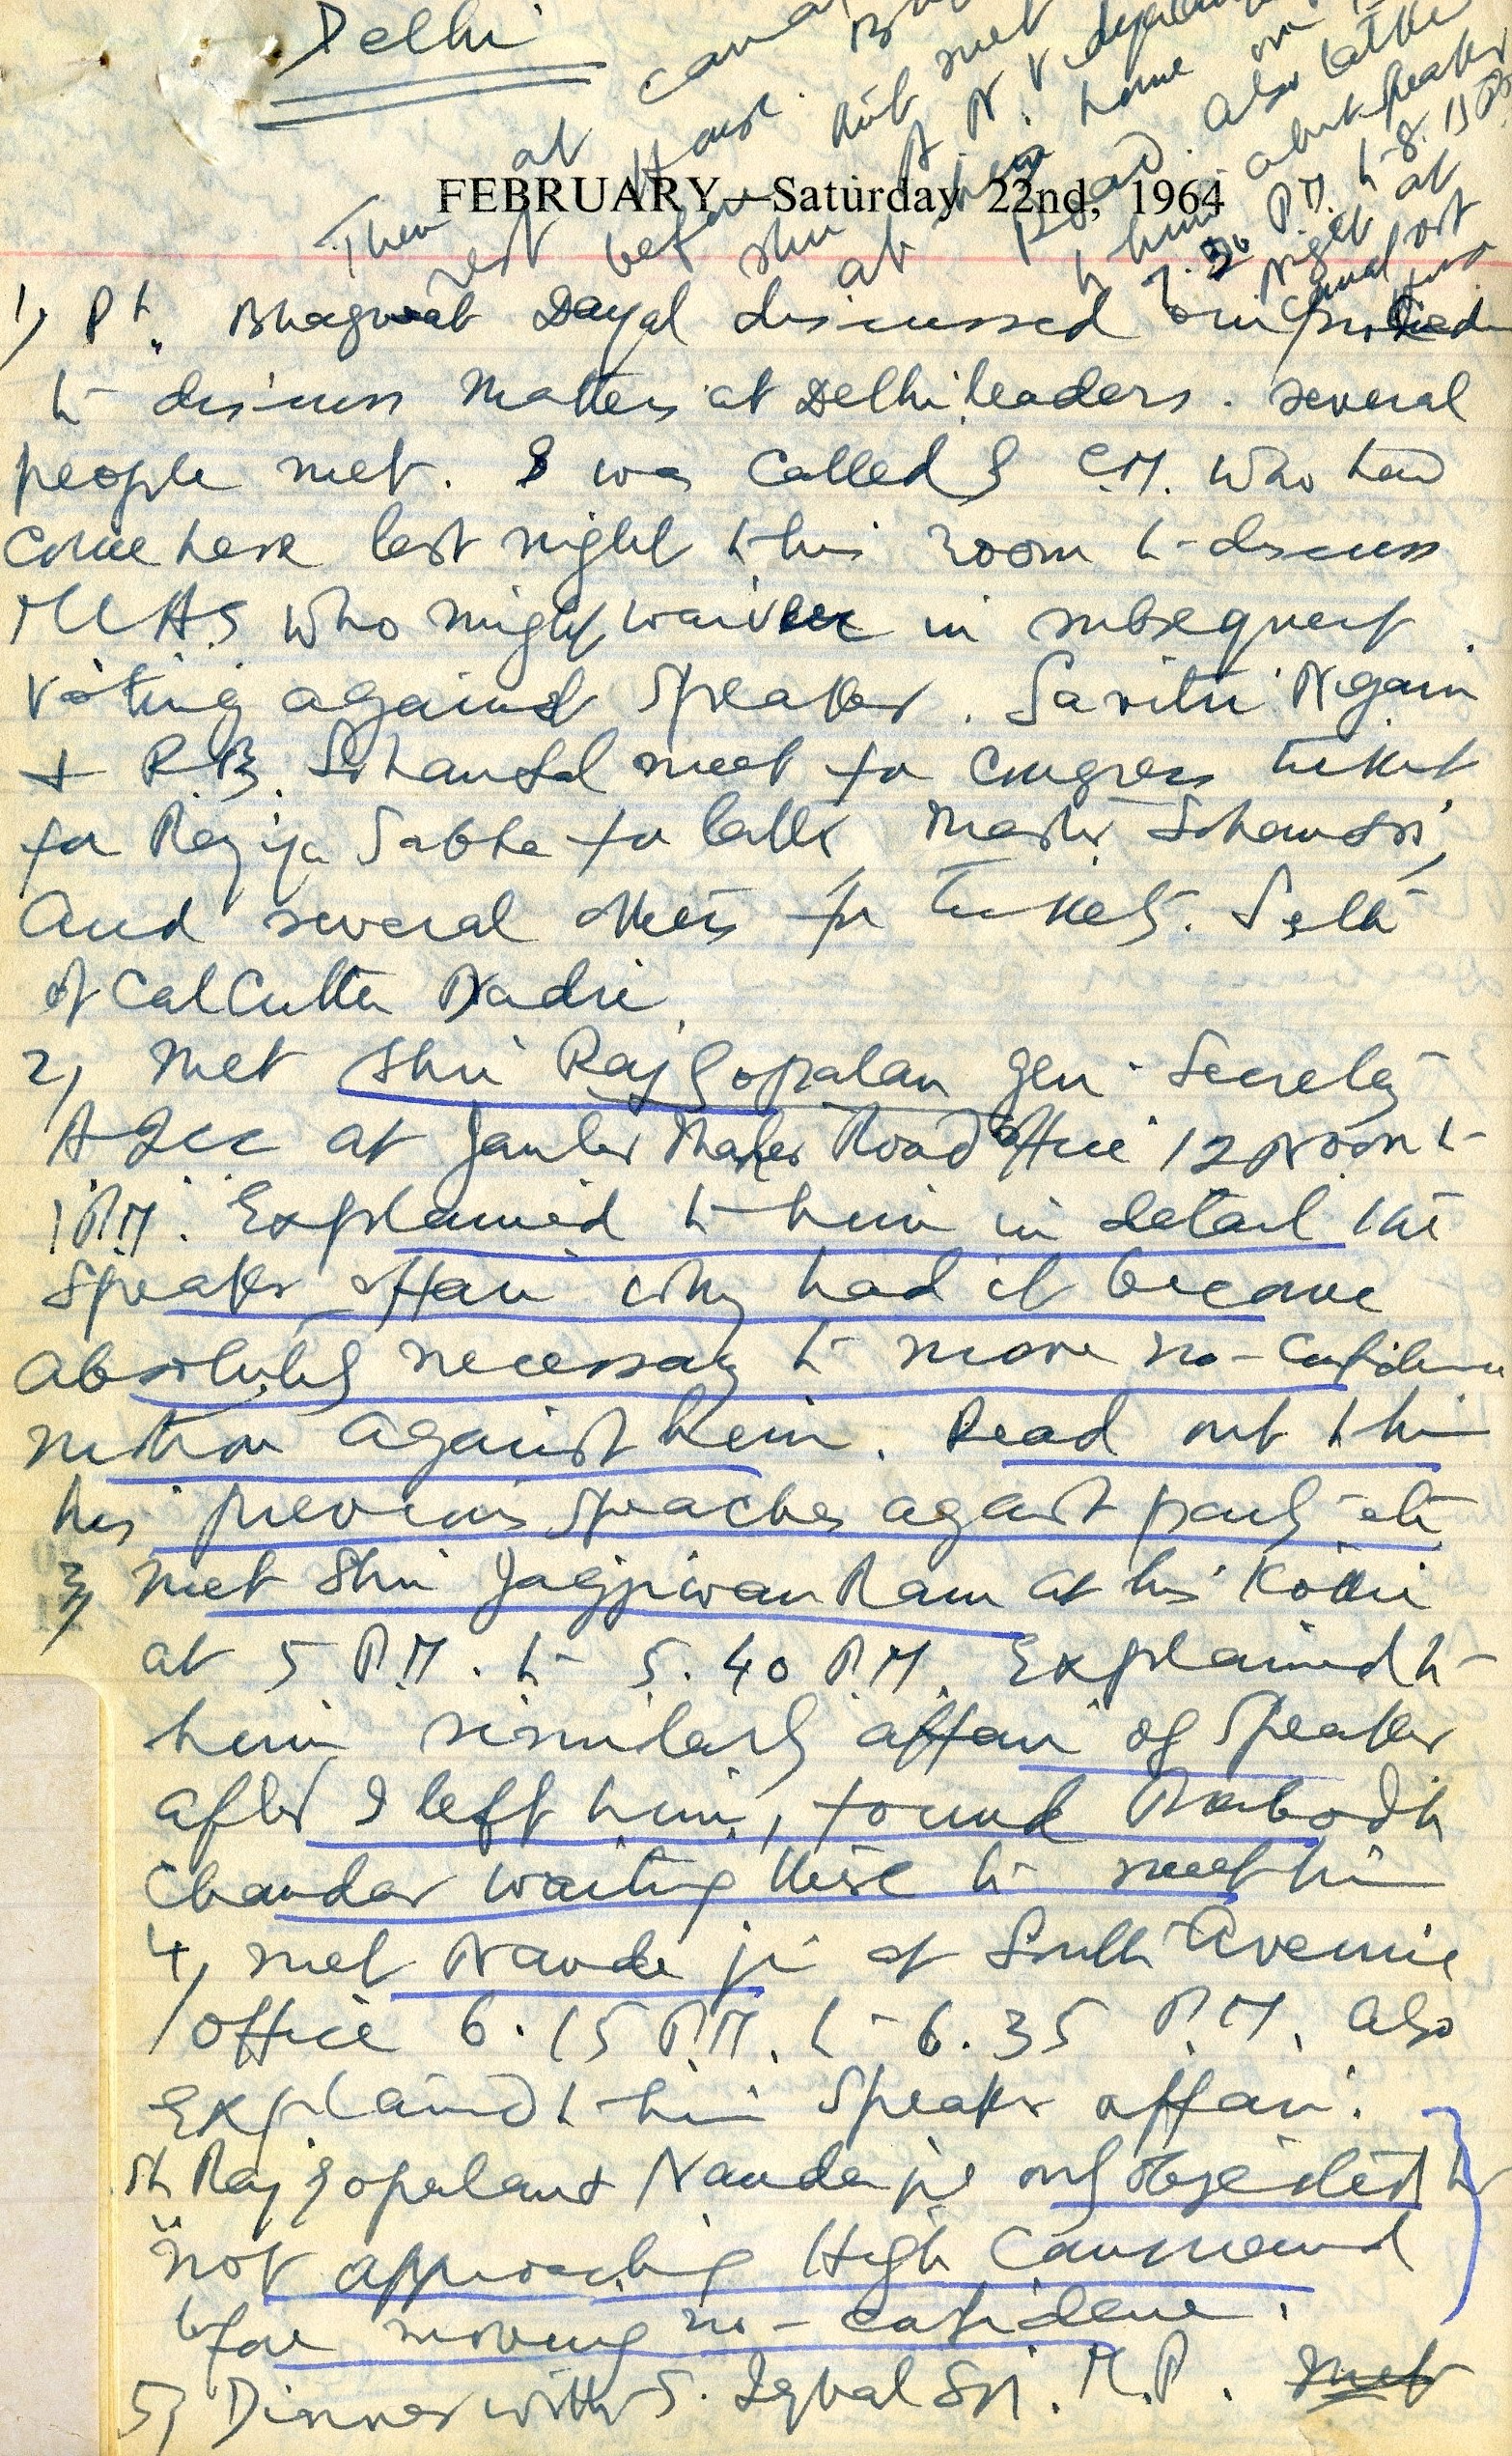 Delhi
FEBRUARY—Saturday 22nd, 1964
Then at
rest before
Shri A. N. V.
at his home on
Road. Also
to him about speaker
7.30 P.M. to 8.15 P.M.
Night at
1) Pt. Bhagwat Dayal discussed our
to discuss matters at Delhi leaders. Several
people met. I was called by C.M. who had
come here last night to his room to discuss
MLAs who might waiver in subsequent
voting against Speaker. Savitri Nigam
& R.B. Sohanlal meet for Congress ticket
for Rajya Sabha for latter, Master
and several others for tickets. Seth
of Calcutta
2) Met Shri Raj Gopalan Gen. Secretary
AICC at Jantar Manter Road Office 12 Noon to
1 P.M. Explained to him in detail the
Speaker affair why had it become
absolutely necessary to move no-confidence
motion against him. Read out to him
his previous speaches against party etc
3) Met Shri Jagjiwan Ram at his Kothi
at 5 P.M. to 5.40 P.M. Explained to
him similarly affair of Speaker
after I left him, found Prabodh
Chander waiting there to meet him
4) met Nanda ji at South Avenue
office 6.15 P.M. to 6.35 P.M. also
Explained to him Speaker affair.
Sh Raj Gopalan & Nanda ji only objected to
not approaching High Command
before moving no-confidence.
5) Dinner with S. Iqbal Singh. M.P. met